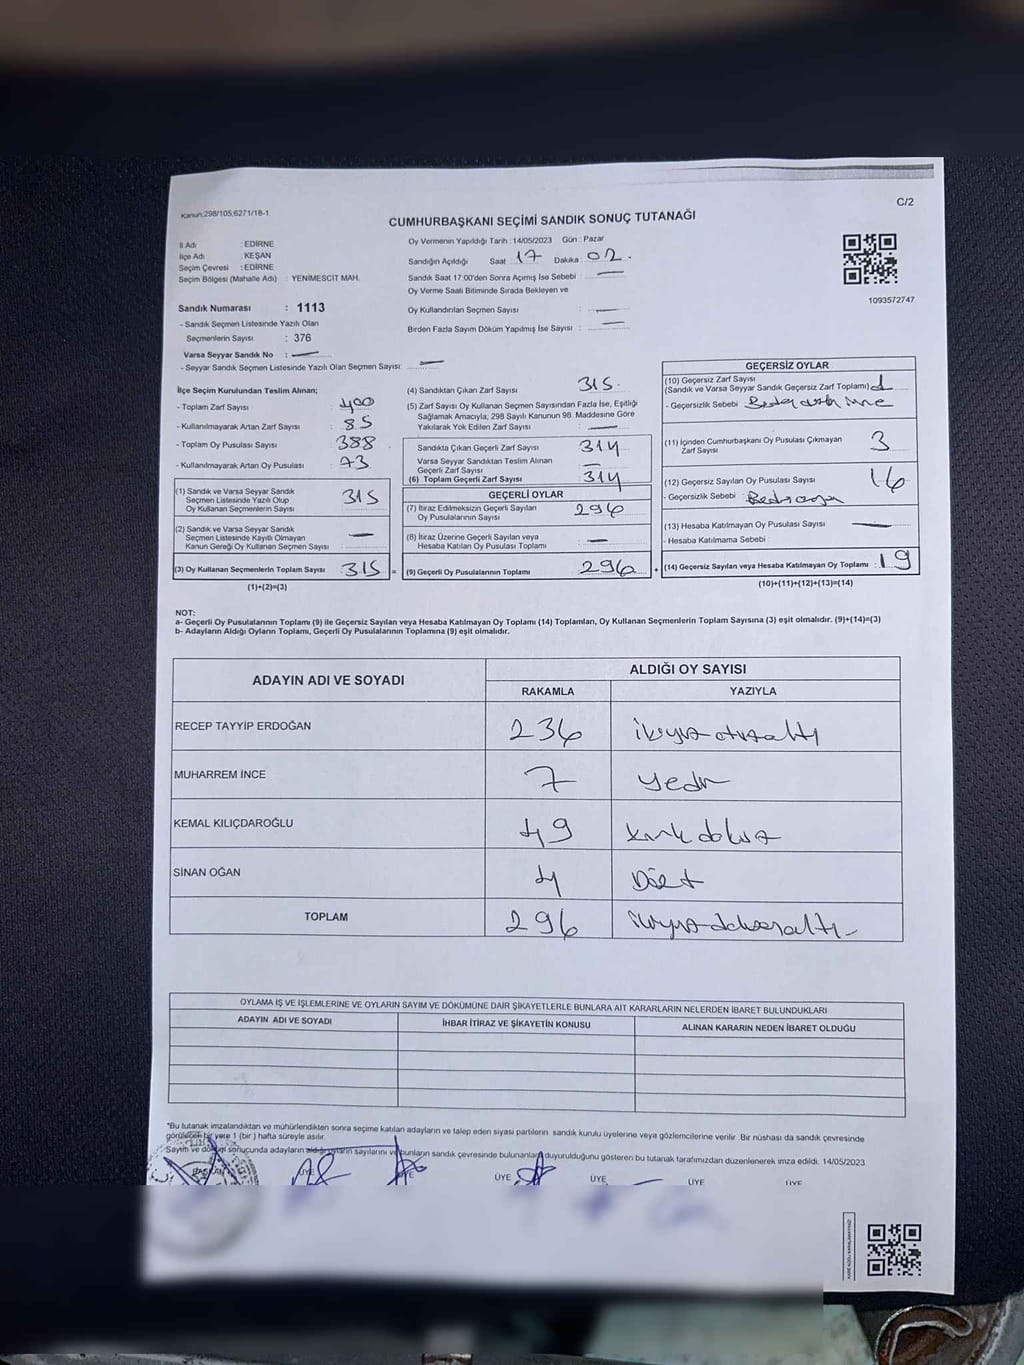 Kanun.298/105;6271/18-1
C/2
CUMHURBAŞKANI SEÇİMİ SANDIK SONUÇ TUTANAĞI
İl Adı : EDİRNE
İlçe Adı : KEŞAN
Seçim Çevresi : EDİRNE
Seçim Bölgesi (Mahalle Adı) : YENİMESCİT MAH.
Sandık Numarası : 1113
- Sandık Seçmen Listesinde Yazılı Olan
Seçmenlerin Sayısı : 376
Varsa Seyyar Sandık No : —
- Seyyar Sandık Seçmen Listesinde Yazılı Olan Seçmen Sayısı: —
Oy Vermenin Yapıldığı Tarih : 14/05/2023 Gün : Pazar
Sandığın Açıldığı Saat 17 Dakika 02.
Sandık Saat 17:00'den Sonra Açımış İse Sebebi : —
Oy Verme Saati Bitiminde Sırada Bekleyen ve
Oy Kullandırılan Seçmen Sayısı : —
Birden Fazla Sayım Döküm Yapılmış İse Sayısı : —
1093572747
İlçe Seçim Kurulundan Teslim Alınan;
- Toplam Zarf Sayısı : 400
- Kullanılmayarak Artan Zarf Sayısı : 85
- Toplam Oy Pusulası Sayısı : 388
- Kullanılmayarak Artan Oy Pusulası : 73
(1) Sandık ve Varsa Seyyar Sandık
Seçmen Listesinde Yazılı Olup
Oy Kullanan Seçmenlerin Sayısı : 315
(2) Sandık ve Varsa Seyyar Sandık
Seçmen Listesinde Kayılı Olmayan
Kanun Gereği Oy Kullanan Seçmen Sayısı : —
(3) Oy Kullanan Seçmenlerin Toplam Sayısı : 315 =
(1)+(2)=(3)
(4) Sandıktan Çıkan Zarf Sayısı 315.
(5) Zarf Sayısı Oy Kullanan Seçmen Sayısından Fazla İse, Eşitliği
Sağlamak Amacıyla; 298 Sayılı Kanunun 98. Maddesine Göre
Yakılarak Yok Edilen Zarf Sayısı : —
Sandıkta Çıkan Geçerli Zarf Sayısı : 314
Varsa Seyyar Sandıktan Teslim Alınan
Geçerli Zarf Sayısı : —
(6) Toplam Geçerli Zarf Sayısı : 314
GEÇERLİ OYLAR
(7) İtiraz Edilmeksizin Geçerli Sayılan
Oy Pusulalarının Sayısı : 296
(8) İtiraz Üzerine Geçerli Sayılan veya
Hesaba Katılan Oy Pusulası Toplamı : —
(9) Geçerli Oy Pusulalarının Toplamı : 296 +
GEÇERSİZ OYLAR
(10) Geçersiz Zarf Sayısı
(Sandık ve Varsa Seyyar Sandık Geçersiz Zarf Toplamı) : 1
- Geçersizlik Sebebi
(11) İçinden Cumhurbaşkanı Oy Pusulası Çıkmayan
Zarf Sayısı : 3
(12) Geçersiz Sayılan Oy Pusulası Sayısı : 16
- Geçersizlik Sebebi
(13) Hesaba Katılmayan Oy Pusulası Sayısı : —
- Hesaba Katılmama Sebebi
(14) Geçersiz Sayılan veya Hesaba Katılmayan Oy Toplamı : 19
(10)+(11)+(12)+(13)=(14)
NOT:
a- Geçerli Oy Pusulalarının Toplamı (9) ile Geçersiz Sayılan veya Hesaba Katılmayan Oy Toplamı (14) Toplamları, Oy Kullanan Seçmenlerin Toplam Sayısına (3) eşit olmalıdır. (9)+(14)=(3)
b- Adayların Aldığı Oyların Toplamı, Geçerli Oy Pusulalarının Toplamına (9) eşit olmalıdır.
ADAYIN ADI VE SOYADI ALDIĞI OY SAYISI
RAKAMLA YAZIYLA
RECEP TAYYİP ERDOĞAN 236 ikiyüz otuzaltı
MUHARREM İNCE 7 yedi
KEMAL KILIÇDAROĞLU 49 kırk dokuz
SİNAN OĞAN 4 Dört
TOPLAM 296 ikiyüz doksanaltı
OYLAMA İŞ VE İŞLEMLERİNE VE OYLARIN SAYIM VE DÖKÜMÜNE DAİR ŞİKAYETLERLE BUNLARA AİT KARARLARIN NELERDEN İBARET BULUNDUKLARI
ADAYIN ADI VE SOYADI İHBAR İTİRAZ VE ŞİKAYETİN KONUSU ALINAN KARARIN NEDEN İBARET OLDUĞU
*Bu tutanak imzalandıktan ve mühürlendikten sonra seçime katılan adayların ve talep eden siyasi partilerin sandık kurulu üyelerine veya gözlemcilerine verilir. Bir nüshası da sandık çevresinde
görülecek bir yere 1 (bir) hafta süreyle asılır.
Sayım ve döküm sonucunda adayların aldığı oyların sayılarını ve bunların sandık çevresinde bulunanlara duyurulduğunu gösteren bu tutanak tarafımızdan düzenlenerek imza edildi. 14/05/2023
BAŞKAN ÜYE ÜYE ÜYE ÜYE ÜYE ÜYE